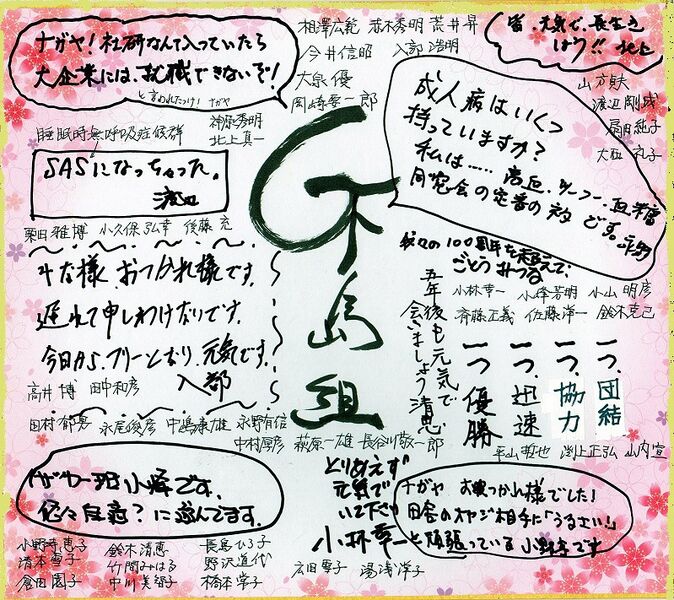 ナガヤ!社研なんて入っていたら
大企業には、就職できないぞ!
と言われたっけ! ナガヤ
相澤広範 赤木秀明 荒井昇
今井信昭 入部浩明
大泉優
岡崎孝一郎
神原秀明
北上真一
皆、元気で、長生き
しよう!! 北上
山方貞夫
渡辺剛成
扇月純子
大西礼子
成人病はいくつ
持っていますか?
同窓会の定番のネタです。
睡眠時無呼吸症候群
SASになっちゃった。
渡辺
栗田雅博 小久保弘幸 後藤充
木島組
我々の100周年を超えて、
ごとうみつる
小林幸一 小峰芳明 小山明彦
斉藤正義 佐藤洋一 鈴木克己
おつかれ様です。
遅れて申しわけないです。
今日から、フリーとなり、元気です!
入部
五年後も元気で
会いましょう 清恵
一つ、団結
一つ、協力
一つ、迅速
一つ、優勝
高井博 田中和彦
田村郁恵 永尾俊彦 中嶋康雄 永野有信
中村厚彦 萩原一雄 長谷川敬一郎
平山哲也 渕上正弘 山内宣
小峰です。
色々反省?に遊んでます。
とりあえず
元気で
いて下さい
小林幸一
ナガヤ お疲れ様でした!
田舎のオヤジ相手に「うるさい!」
と頑張っている 小野寺です
小野寺恵子 鈴木清恵 長島ひろ子
清本雪子 竹間みはる 野沢道代
倉田園子 中川美智子 橋本栄子
広田専子 湯浅洋子